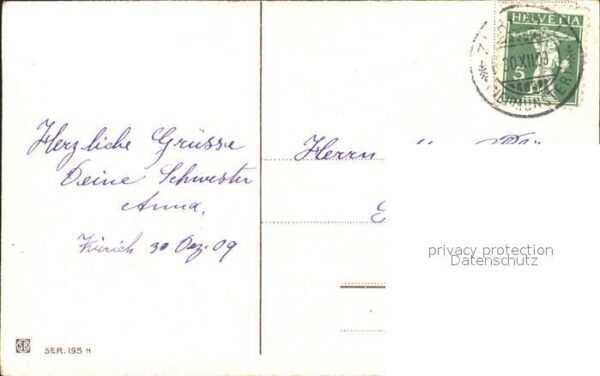 HELVETIA
5
30.XII.09
Herzliche Grüsse
Deine Schwester
Anna.
Zürich 30 Dez. 09
Herrn
privacy protection
Datenschutz
SER. 195 H